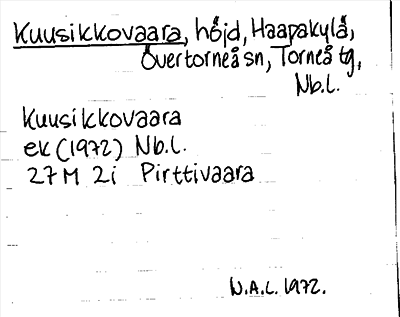 Kuusikkovaara, höjd, Haapakylä,
Övertorneå sn, Torneå tg,
Nb.l.
Kuusikkovaara
ek (1972) Nb.l.
27M 2i Pirttivaara
N.A.L. 1972.